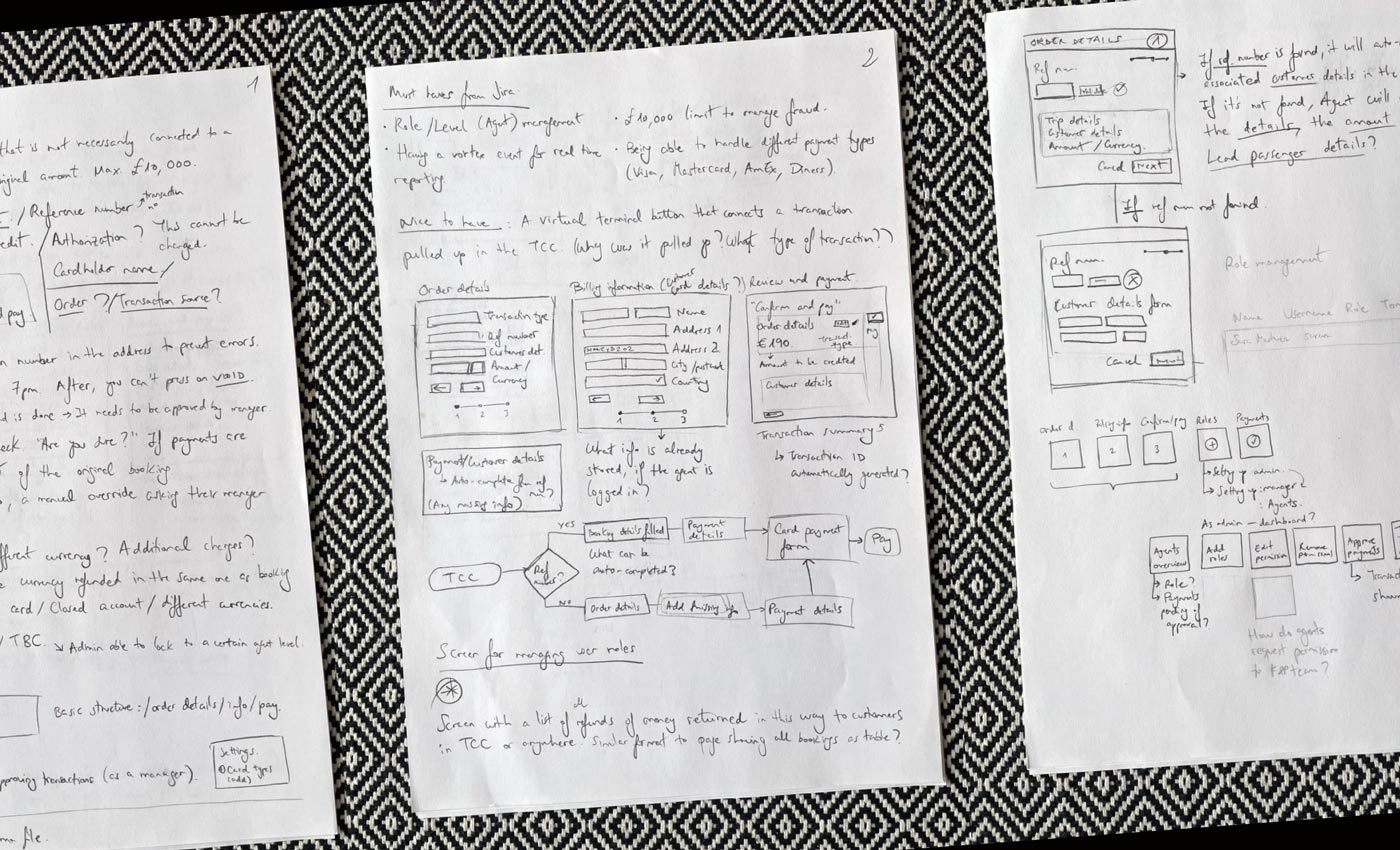 1
that is not necessarily connected to a
original amount. Max. £10,000.
/Reference number
transaction
no
/Authorization? This cannot be
charged.
Cardholder name/
Order?/Transaction source?
pay.
number in the address to prevent errors.
7pm. After, you can't press on VOID.
is done → It needs to be approved by manager.
"Are you sure?" If payments are
of the original booking
, a manual override asking their manager
different currency? Additional charges?
currency refunded in the same one as booking
card/Closed account/different currencies.
/TBC. ↘ Admin able to lock to a certain agent level.
Basic structure:/order details/info/pay.
Settings.
Card types
(add)
approving transactions (as a manager).
file.
2
Must haves from Jira.
· Role/Level (Agent) management
· Having a vortex event for real time
reporting
· £10,000 limit to manage fraud.
· Being able to handle different payment types
(Visa, Mastercard, AmEx, Diners).
Nice to have: A virtual terminal button that connects a transaction
pulled up in the TCC. (Why was it pulled up? What type of transaction?)
Order details
Transaction type
Ref number
Customer det.
Amount/
Currency
1 2 3
Billing information (Customer
Card details?)
Name
Address 1
Address 2
City/postcode
Country
1 2 3
Review and payment.
"Confirm and pay"
Order details
€190
transact.
type
Amount to be credited
Customer details
Payment/Customer details
↳ Auto-complete from ref
num?
(Any missing info)
What info is already
stored, if the agent is
logged in?
Transaction summary
↳ Transaction ID
automatically generated?
TCC
Ref
number?
Yes
Booking details filled
Payment
details
Card payment
form
Pay
What can be
auto-completed?
No
Order details
Add missing info
Payment details
Screen for managing user roles
Screen with a list of all refunds of money returned in this way to customers
in TCC or anywhere. Similar format to page showing all bookings as table?
ORDER DETAILS 1
Ref num.
Validate
Trip details
Customer details
Amount/Currency.
Cancel Next
If ref. number is found, it will auto-
associated customer details in the
If it's not found, Agent will
the details, the amount
Lead passenger details?
If ref num not found.
Ref num.
Customer details form
Cancel Next
Role management
Name Username Role
Order d. Billing info Confirm/pay Roles Payments
1 2 3
↳ Setting up admin.
↳ Setting up: manager
: Agents.
As admin — dashboard?
Agents
overview
Add
roles
Edit
permission
Remove
permissions
Approve
payments
↳ Role?
↳ Payments
pending if
approval?
How do agents
request permission
to
team?